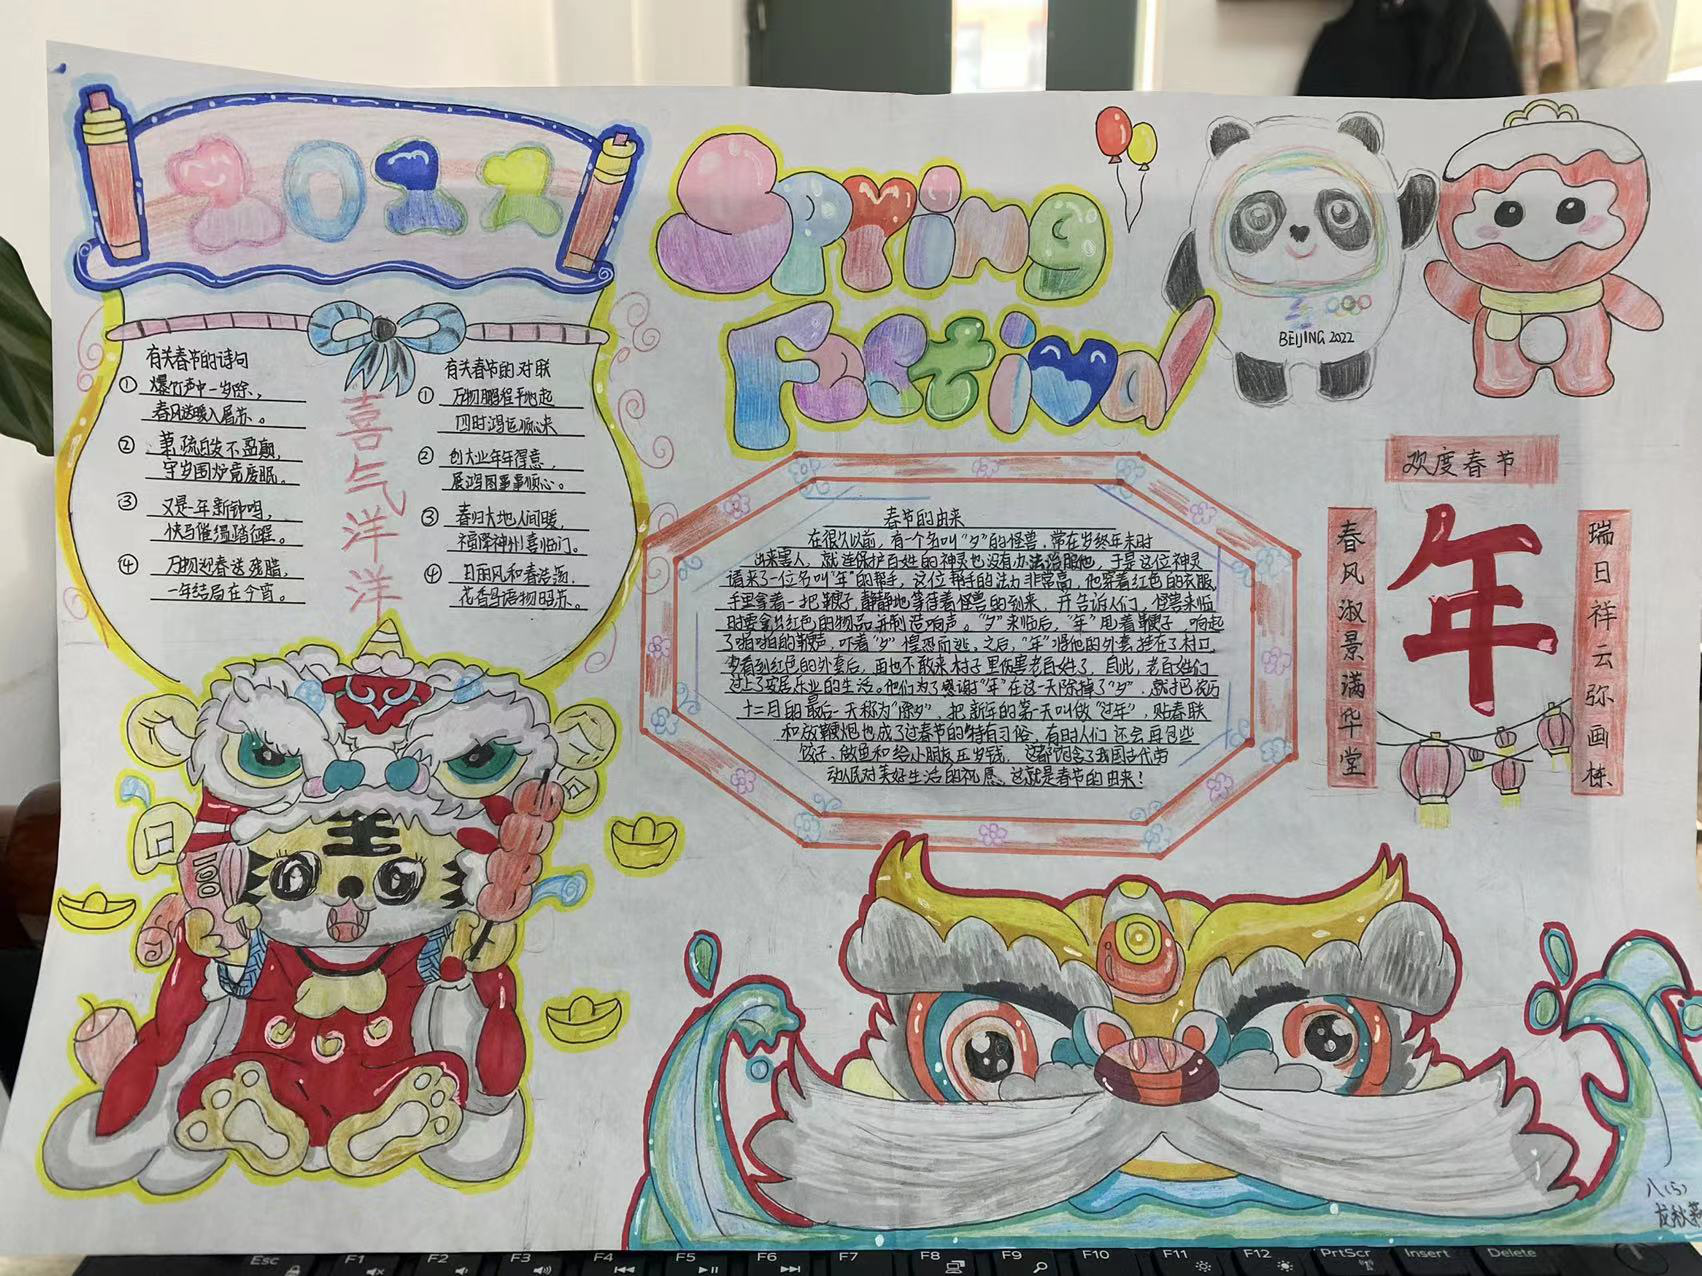 2022
Spring
Festival
BEIJING 2022
有关春节的诗句
① 爆竹声中一岁除,
春风送暖入屠苏。
② 萧疏白发不盈颠,
守岁围炉竟废眠。
③ 又是一年新钟鸣,
快马催缰踏征程。
④ 万物迎春送残腊,
一年结局在今宵。
喜气洋洋
有关春节的对联
① 万物鹏程平地起
四时鸿运顺心来
② 创大业年年得意,
展鸿图事事顺心。
③ 春归大地人间暖,
福降神州喜临门。
④ 日丽风和春浩荡,
花香鸟语物昭苏。
春节的由来
在很久以前,有一个名叫“夕”的怪兽,常在岁终年末时
出来害人,就连保护百姓的神灵也没有办法治服他,于是这位神灵
请来了一位名叫“年”的帮手,这位帮手的法力非常高,他穿着红色的衣服,
手里拿着一把鞭子,静静地等待着怪兽的到来,并告诉人们,怪兽来临
时要拿出红色的物品并制造响声。“夕”来临后,“年”甩着鞭子,响起
了啪啪的鞭声,吓着“夕”惶恐而逃。之后,“年”将他的外套挂在了村口,
夕看到红色的外套后,再也不敢来村子里伤害老百姓了,自此,老百姓们
过上了安居乐业的生活。他们为了感谢“年”在这一天除掉了“夕”,就把农历
十二月的最后一天称为“除夕”,把新年的第一天叫做“过年”,贴春联
和放鞭炮也成了过春节的特有习俗,有时人们还会再包些
饺子、做鱼和给小朋友压岁钱,这都饱含了我国古代劳
动人民对美好生活的祝愿。这就是春节的由来!
欢度春节
春风淑景满华堂
年
瑞日祥云弥画栋
100
八(5)
Esc F1 F2 F3 F4 F5 F6 F7 F8 F9 F10 F11 F12 PrtScr Insert Delete